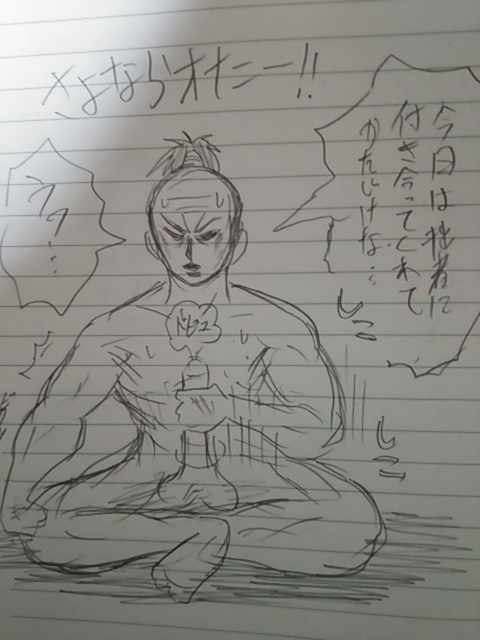 さよならオナニー!!
今日は拙者に
付き合ってくれて
かたじけな…
ウッ…
ドピュ
しこ
しこ